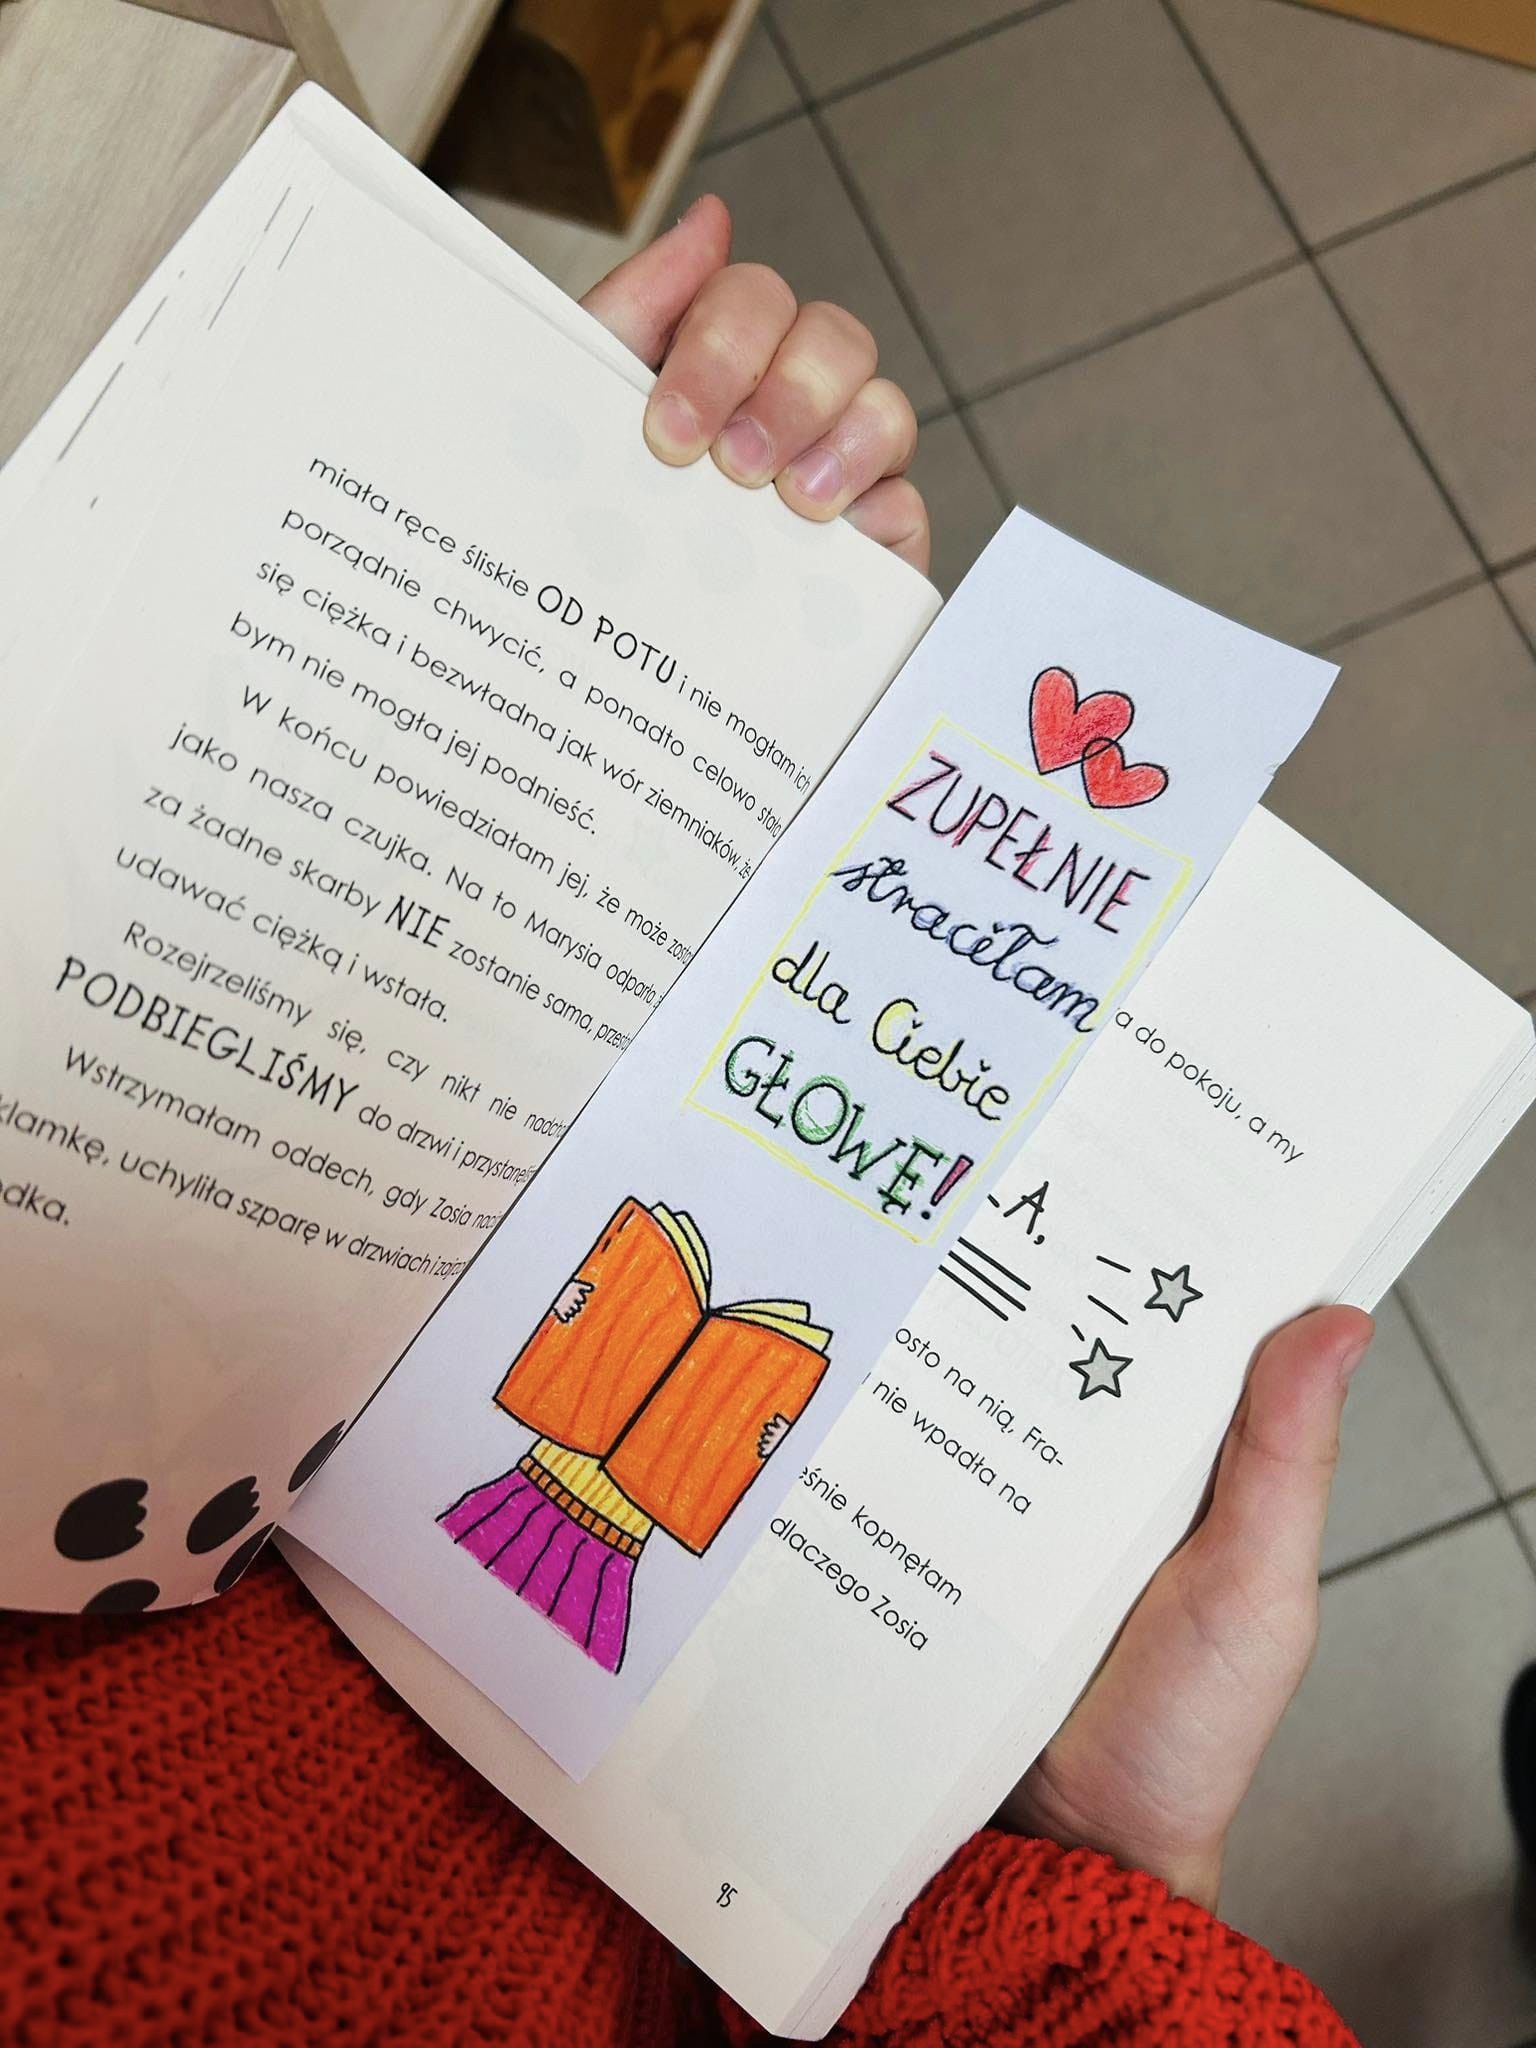 miała ręce śliskie OD POTU i nie mogłam ich
porządnie chwycić, a ponadto celowo stała
się ciężka i bezwładna jak wór ziemniaków, że-
bym nie mogła jej podnieść.
W końcu powiedziałam jej, że może
jako nasza czujka. Na to Marysia odparła
za żadne skarby NIE zostanie sama,
udawać ciężką i wstała.
Rozejrzeliśmy się, czy nikt nie
PODBIEGLIŚMY do drzwi i
Wstrzymałam oddech, gdy Zosia
klamkę, uchyliła szparę w drzwiach i
ZUPEŁNIE
straciłam
dla Ciebie
GŁOWĘ!
a do pokoju, a my
A,
na nią, Fra-
nie wpadła na
kopnęłam
dlaczego Zosia
95